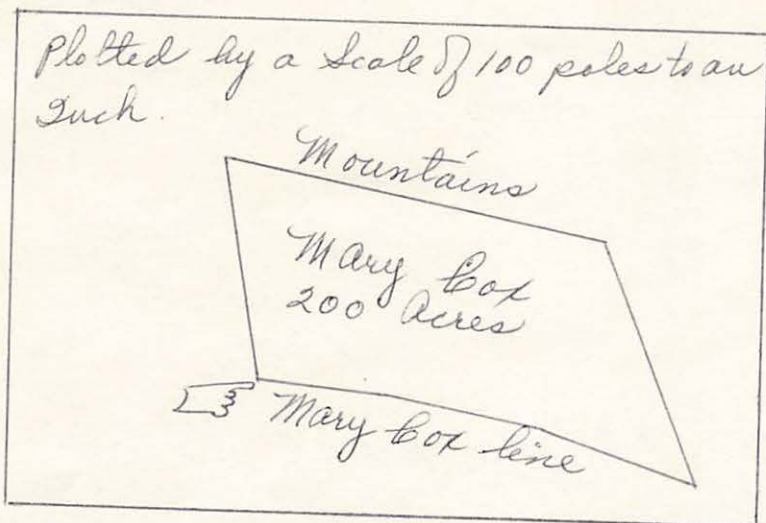 Plotted by a Scale of 100 poles to an
Inch.
Mountains
Mary Cox
200 Acres
Mary Cox line